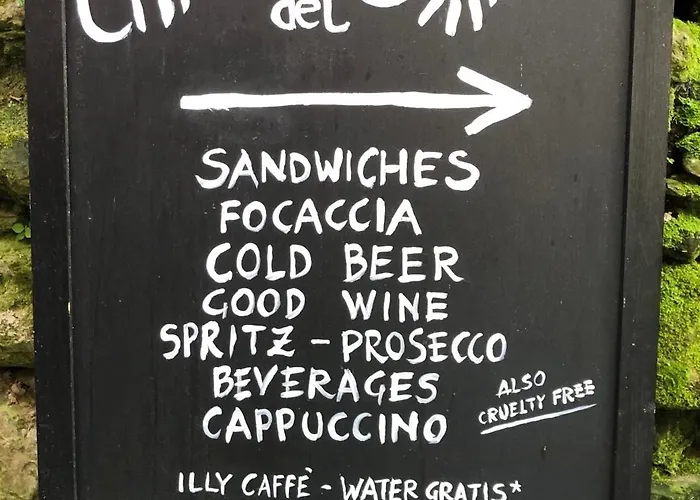 del
SANDWICHES
FOCACCIA
COLD BEER
GOOD WINE
SPRITZ - PROSECCO
BEVERAGES
CAPPUCCINO
ALSO
CRUELTY FREE
ILLY CAFFÈ - WATER GRATIS*